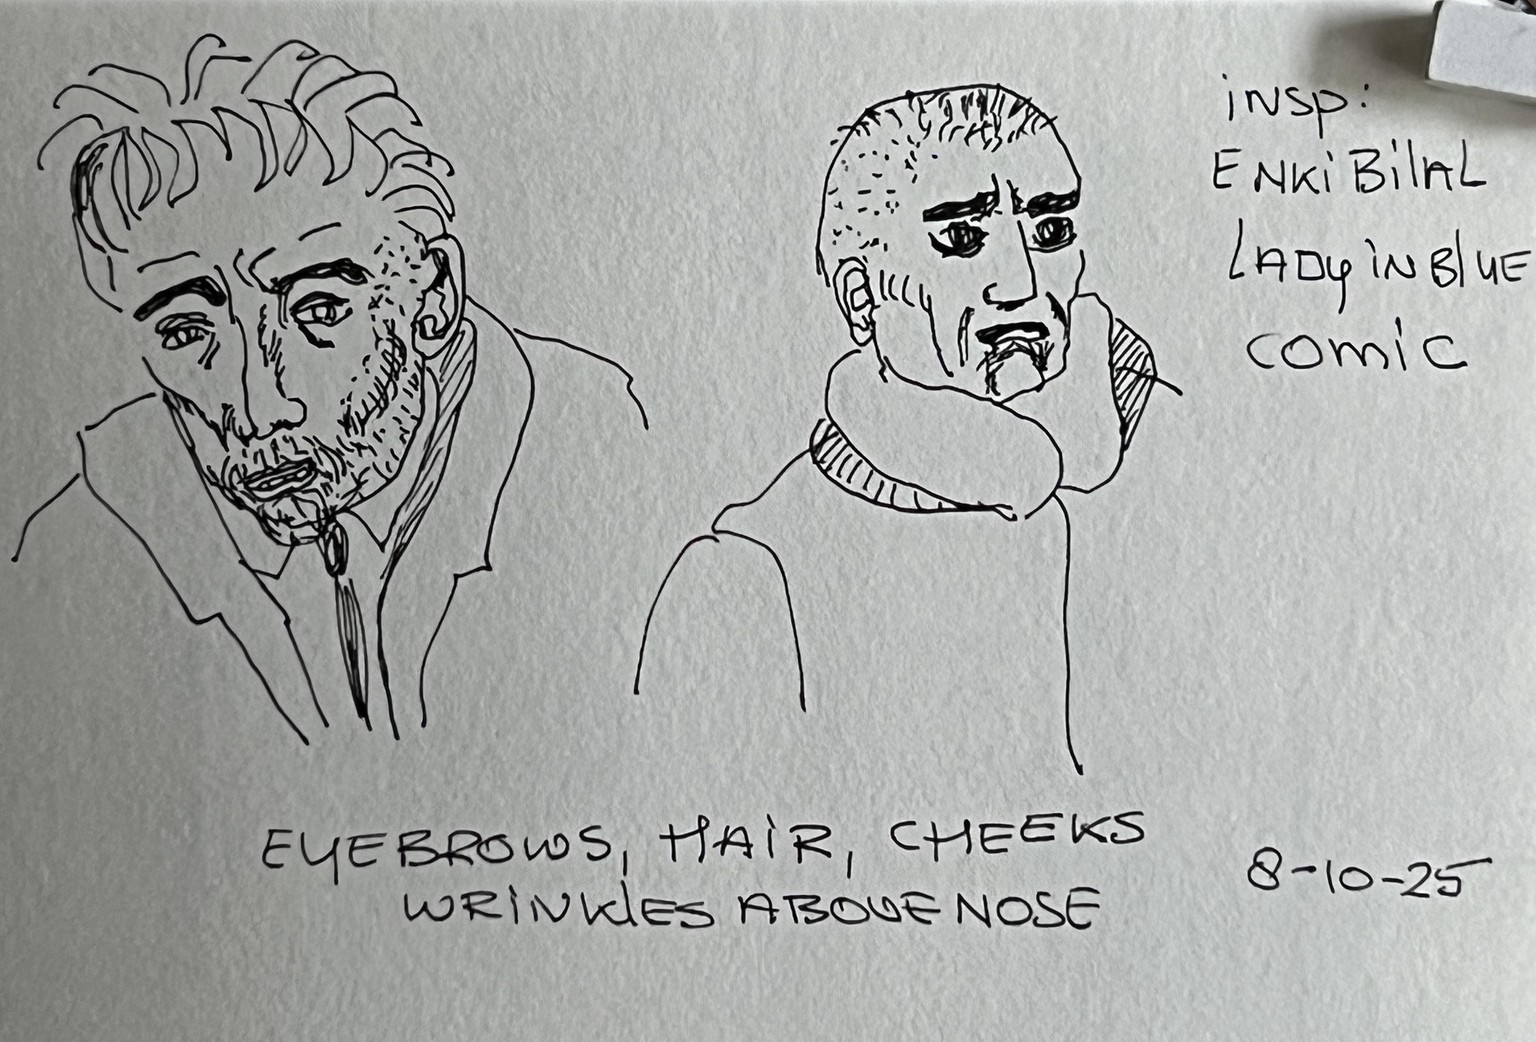 iNSP:
ENKi BiLAL
LADY iN BLUE
COMiC
EYEBROWS, HAiR, CHEEKS
WRiNKlES ABOVE NOSE
8-10-25